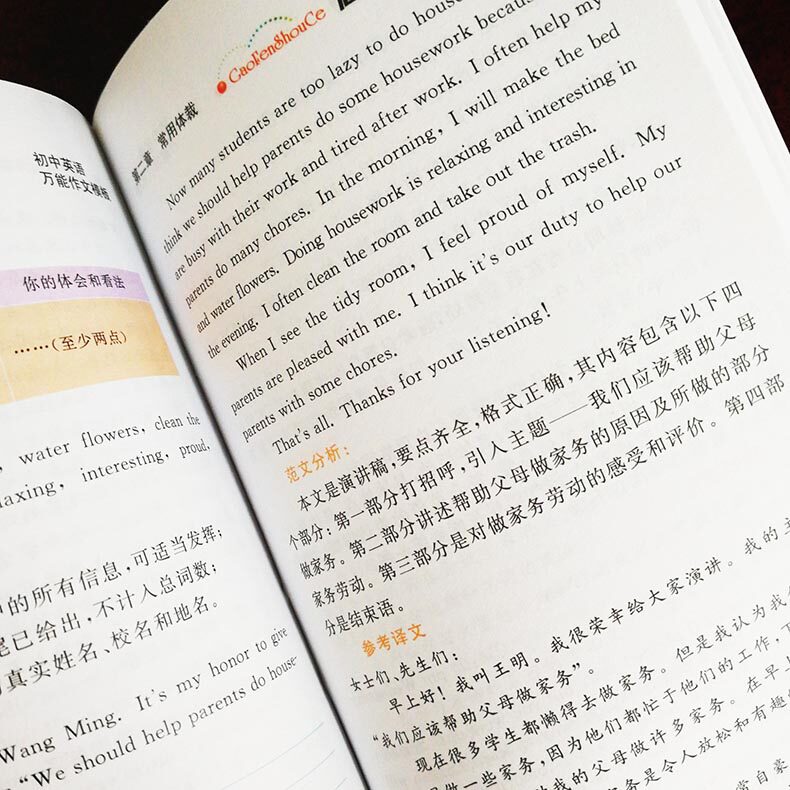 初中英语
万能作文模板
你的体会和看法
……(至少两点)
, water flowers, clean the
laxing, interesting, proud,
的所有信息，可适当发挥；
尾已给出，不计入总词数；
真实姓名、校名和地名。
Wang Ming. It's my honor to give
"We should help parents do house-
CaoFenShouCe
第二章 常用体裁
Now many students are too lazy to do
think we should help parents do some housework
are busy with their work and tired after work. I often help my
parents do many chores. In the morning, I will make the bed
and water flowers. Doing housework is relaxing and interesting in
the evening, I often clean the room and take out the trash.
When I see the tidy room, I feel proud of myself. My
parents are pleased with me. I think it's our duty to help our
parents with some chores.
That's all. Thanks for your listening!
范文分析：
本文是演讲稿，要点齐全，格式正确，其内容包含以下四
个部分：第一部分打招呼，引入主题——我们应该帮助父母
做家务。第二部分讲述帮助父母做家务的原因及所做的部分
家务劳动。第三部分是对做家务劳动的感受和评价。第四部
分是结束语。
参考译文
女士们、先生们：
早上好！我叫王明。我很荣幸给大家演讲。我的主
“我们应该帮助父母做家务”。
现在很多学生都懒得去做家务。但是我认为我
做一些家务，因为他们都忙于他们的工作，
我的父母做许多家务。在早上
家务是令人放松和有趣
常自豪